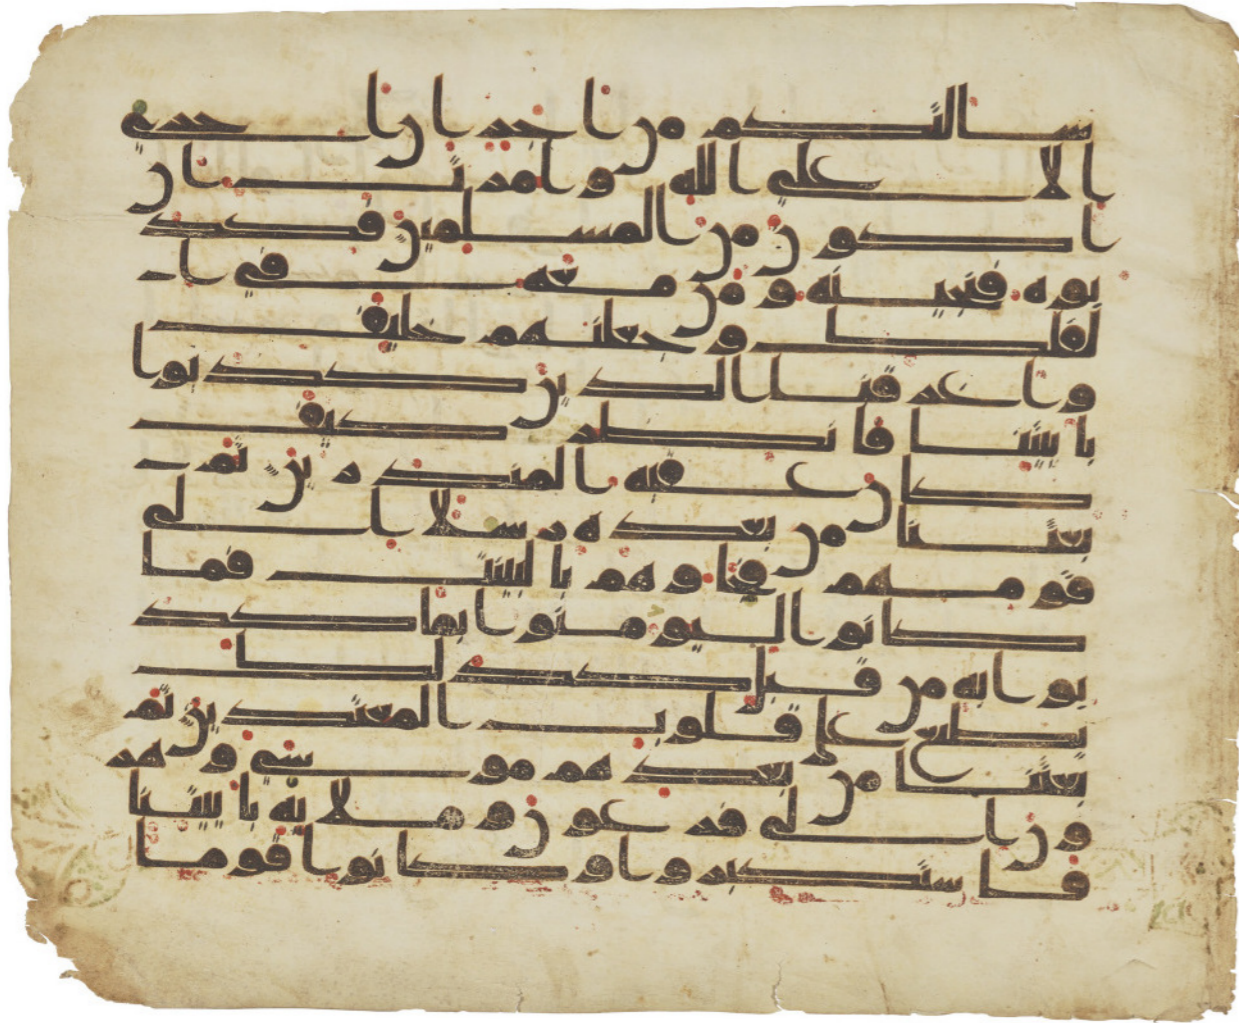 سالتكم من اجر ان اجري
الا على الله وامرت ان
اكون من المسلمين فكذ
بوه فنجينه ومن معه في ا
لفلك وجعلنهم خليف
واغرقنا الذين كذبوا
بايتنا فانظر كيف
كان عقبة المنذرين ثم
بعثنا من بعده رسلا الى
قومهم فجاوهم بالبينت فما
كانوا ليومنوا بما كذ
بوا به من قبل كذلك
نطبع على قلوب المعتدين ثم
بعثنا من بعدهم موسى وهر
ون الى فرعون وملايه بايتنا
فاستكبروا وكانوا قوما